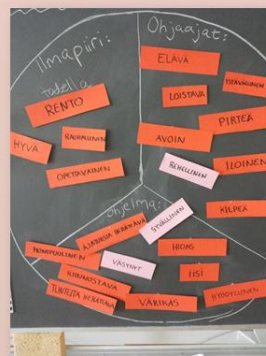 Ilmapiiri:
todella
RENTO
HYVÄ
RAUHALLINEN
OPETTAVAINEN
Ohjaajat:
ELÄVÄ
LOISTAVA
YSTÄVÄLLINEN
PIRTEÄ
AVOIN
REHELLINEN
ILOINEN
KILPEÄ
Ohjelma:
AJATUKSIA HERÄTTÄVÄ
SYVÄLLINEN
MONIPUOLINEN
VÄSYNYT
HIDAS
KIINNOSTAVA
IISI
TUNTEITA HERÄTTÄVÄ
VÄRIKÄS
HYÖDYLLINEN